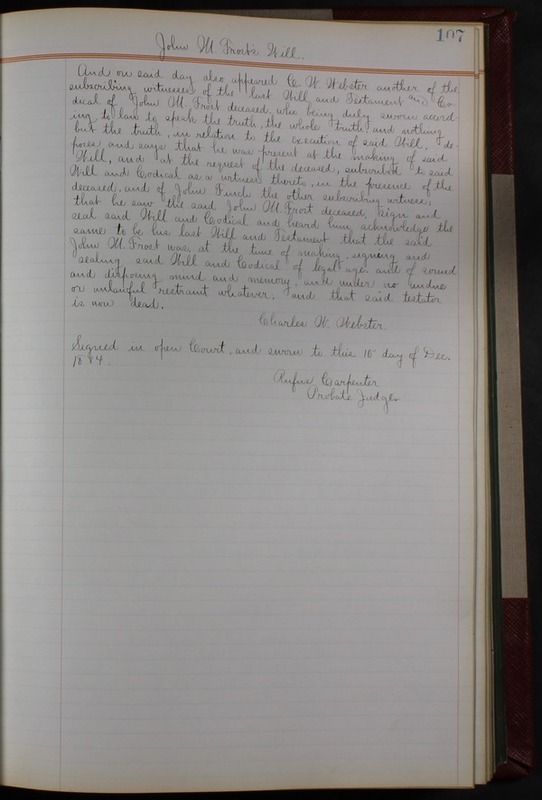 107
John M. Frost's Will.
And on said day also appeared C. W. Webster another of the
subscribing witnesses of the last Will and Testament and Co-
dical of John M. Frost deceased, who being duly sworn accord-
ing to law to speak the truth, the whole truth and nothing
but the truth, in relation to the execution of said Will, de-
poses and says that he was present at the making of said
Will, and at the request of the deceased, subscribed to said
Will and Codical as a witness thereto, in the presence of the
deceased, and of John Finch the other subscribing witness;
that he saw the said John M. Frost deceased, sign and
seal said Will and Codical and heard him acknowledge the
same to be his last Will and Testament that the said
John M. Frost was, at the time of making, signing and
sealing said Will and Codical of legal age and of sound
and disposing mind and memory, and under no undue
or unlawful restraint whatever; and that said testator
is now dead.
Charles W. Webster.
Signed in open Court, and sworn to this 10 day of Dec.
1884.
Rufus Carpenter
Probate Judge